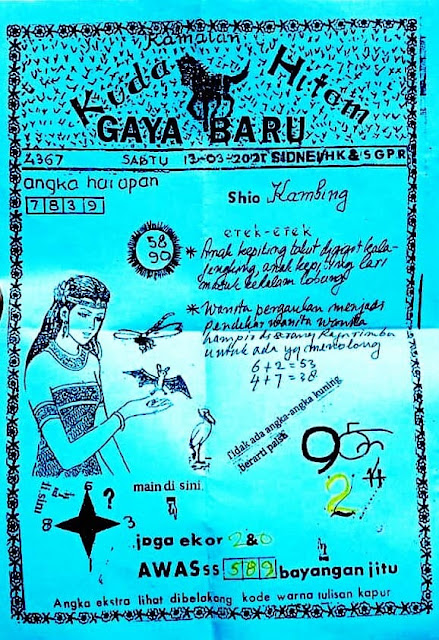 Ramalan
Kuda Hitam
GAYA BARU
4367 SABTU 13-03-2021 SIDNEI/HK & SGPR
angka harapan
7839
Shio Kambing
erek-erek
58
90
* Anak kepiting takut digigit kala-
jengking, anak kepiting lari
masuk kedalam lobang
* Wanita pergaulan menjadi
pendekar wanita
hampir diserang
untuk ada yg menolong
6+2=53
4+7=38
Tidak ada angka-angka kuning
berarti palsu
9
2
main di sini
di sini
6
?
8
3
jaga ekor 2&0
AWASss 589 bayangan jitu
Angka ekstra lihat dibelakang kode warna tulisan kapur